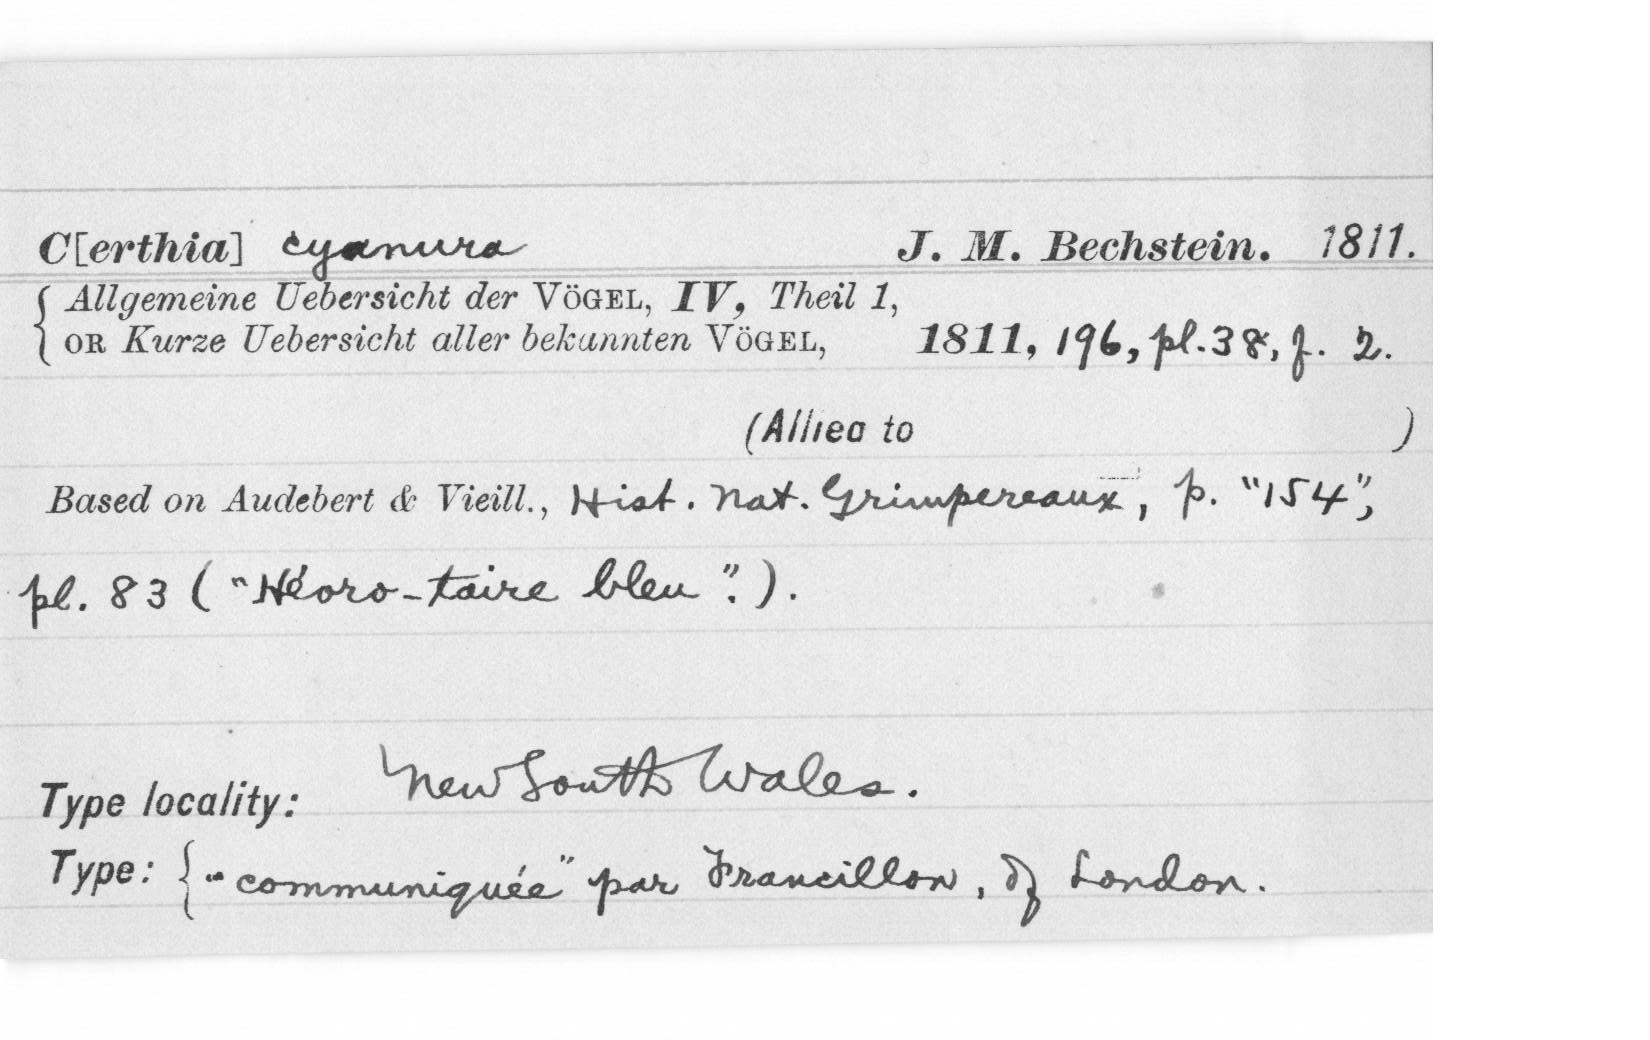 C[erthia] cyanura J. M. Bechstein. 1811.
Allgemeine Uebersicht der VÖGEL, IV, Theil 1,
OR Kurze Uebersicht aller bekannten VÖGEL, 1811, 196, pl. 38, f. 2.
(Allied to )
Based on Audebert & Vieill., Hist. Nat. Grimpereaux, p. "154",
pl. 83 ("Héoro-taire bleu".).
Type locality: New South Wales.
Type: { "communiquée" par Francillon, of London.